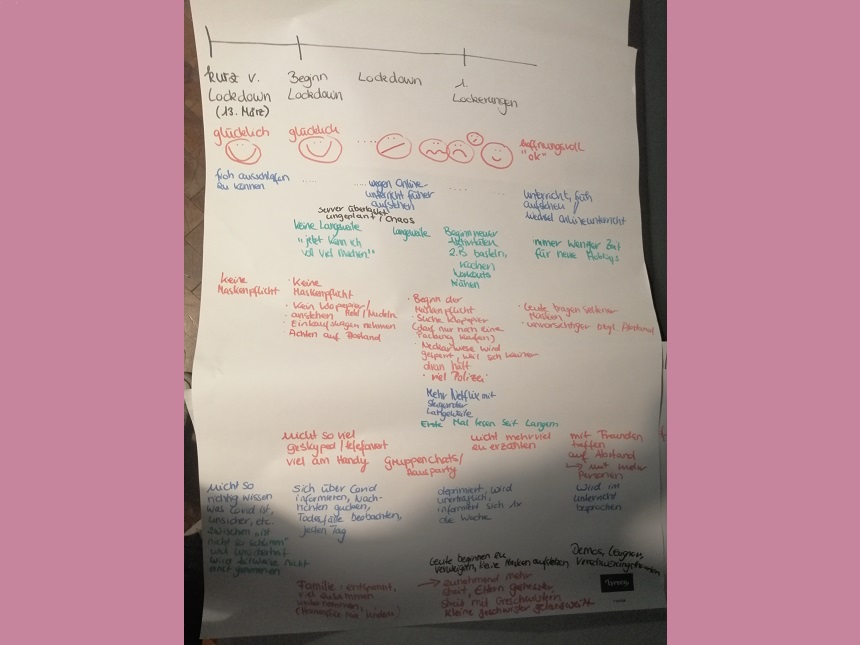 kurz v.
Lockdown
(13. März)
Beginn
Lockdown
Lockdown
1.
Lockerungen
glücklich
glücklich
hoffnungsvoll
"ok"
sich ausschlafen
zu können
wegen Online
unterricht früher
aufstehen
unterricht, früh
aufstehen
Wechsel onlineunterricht
Server überlastet
ungeplant / CHAOS
keine Langeweile
"jetzt kann ich
voll viel machen"
Langeweile
Beginn neuer
Aktivitäten
z.B. basteln,
kochen
Workouts
Nähen
immer weniger Zeit
für neue Hobbys
keine
Maskenpflicht
· Keine
Maskenpflicht
· Kein Klopapier/
· anstehen Mehl/Nudeln
· Einkaufswagen nehmen
Achten auf Abstand
· Beginn der
Maskenpflicht
· Suche Klopapier
(darf nur noch eine
Packung kaufen)
· Neckarwiese wird
gesperrt, weil sich keiner
dran hält
· viel Polizei
· Leute tragen seltener
Masken
· unvorsichtiger bzgl. Abstand
Mehr Netflix mit
steigender
Langeweile
Erste Mal lesen seit Langem
nicht so viel
geskyped/telefoniert
viel am Handy
Gruppenchats/
Hausparty
nicht mehr viel
zu erzählen
mit Freunden
treffen
auf Abstand
→ mit mehr
Personen
nicht so
richtig wissen
was Covid ist,
unsicher, etc.
zwischen "ist
nicht so schlimm"
und Unsicherheit
wird teilweise nicht
ernst genommen
Sich über Covid
informieren, Nach-
richten gucken,
Todesfälle beobachten,
jeden Tag
deprimiert, wird
unerträglich,
informiert sich 1x
die Woche
wird im
unterricht
besprochen
Leute beginnen zu
verweigern, keine Masken aufsetzen
Demos, Leugner,
Verschwörungstheorien
Familie: entspannt,
viel zusammen
unternommen,
→ zunehmend mehr
Streit, Eltern gestresster,
Streit mit Geschwistern,
kleine Geschwister gelangweilt